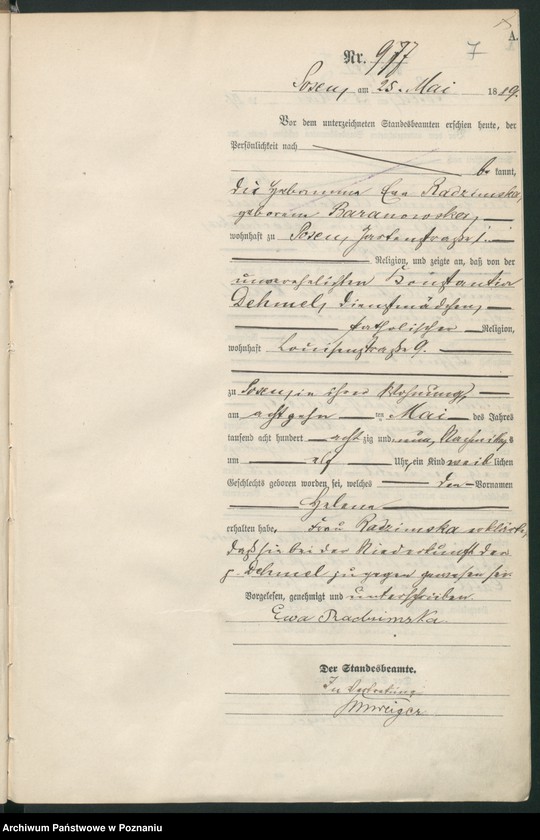 A.
7
Nr. 977
Posen, am 25. Mai 1889.
Vor dem unterzeichneten Standesbeamten erschien heute, der
Persönlichkeit nach
bekannt,
die Hebamme Eva Radzimska,
geborene Baranowska,
wohnhaft zu Posen, Gartenstraße 1.
Religion, und zeigte an, daß von der
unverehelichten Konstantia
Dehmel, Dienstmädchen,
katholischer Religion,
wohnhaft Louisenstraße 9.
zu Posen, in ihrer Wohnung,
am achtzehn ten Mai des Jahres
tausend acht hundert achtzig und neun, Nachmittags
um elf Uhr, ein Kind weiblichen
Geschlechts geboren worden sei, welches den Vornamen
Helena
erhalten habe. Frau Radzimska erklärte,
daß sie bei der Niederkunft der
p. Dehmel zugegen gewesen sei.
Vorgelesen, genehmigt und unterschrieben
Ewa Radzimska
Der Standesbeamte.
In Vertretung
Archiwum Państwowe w Poznaniu